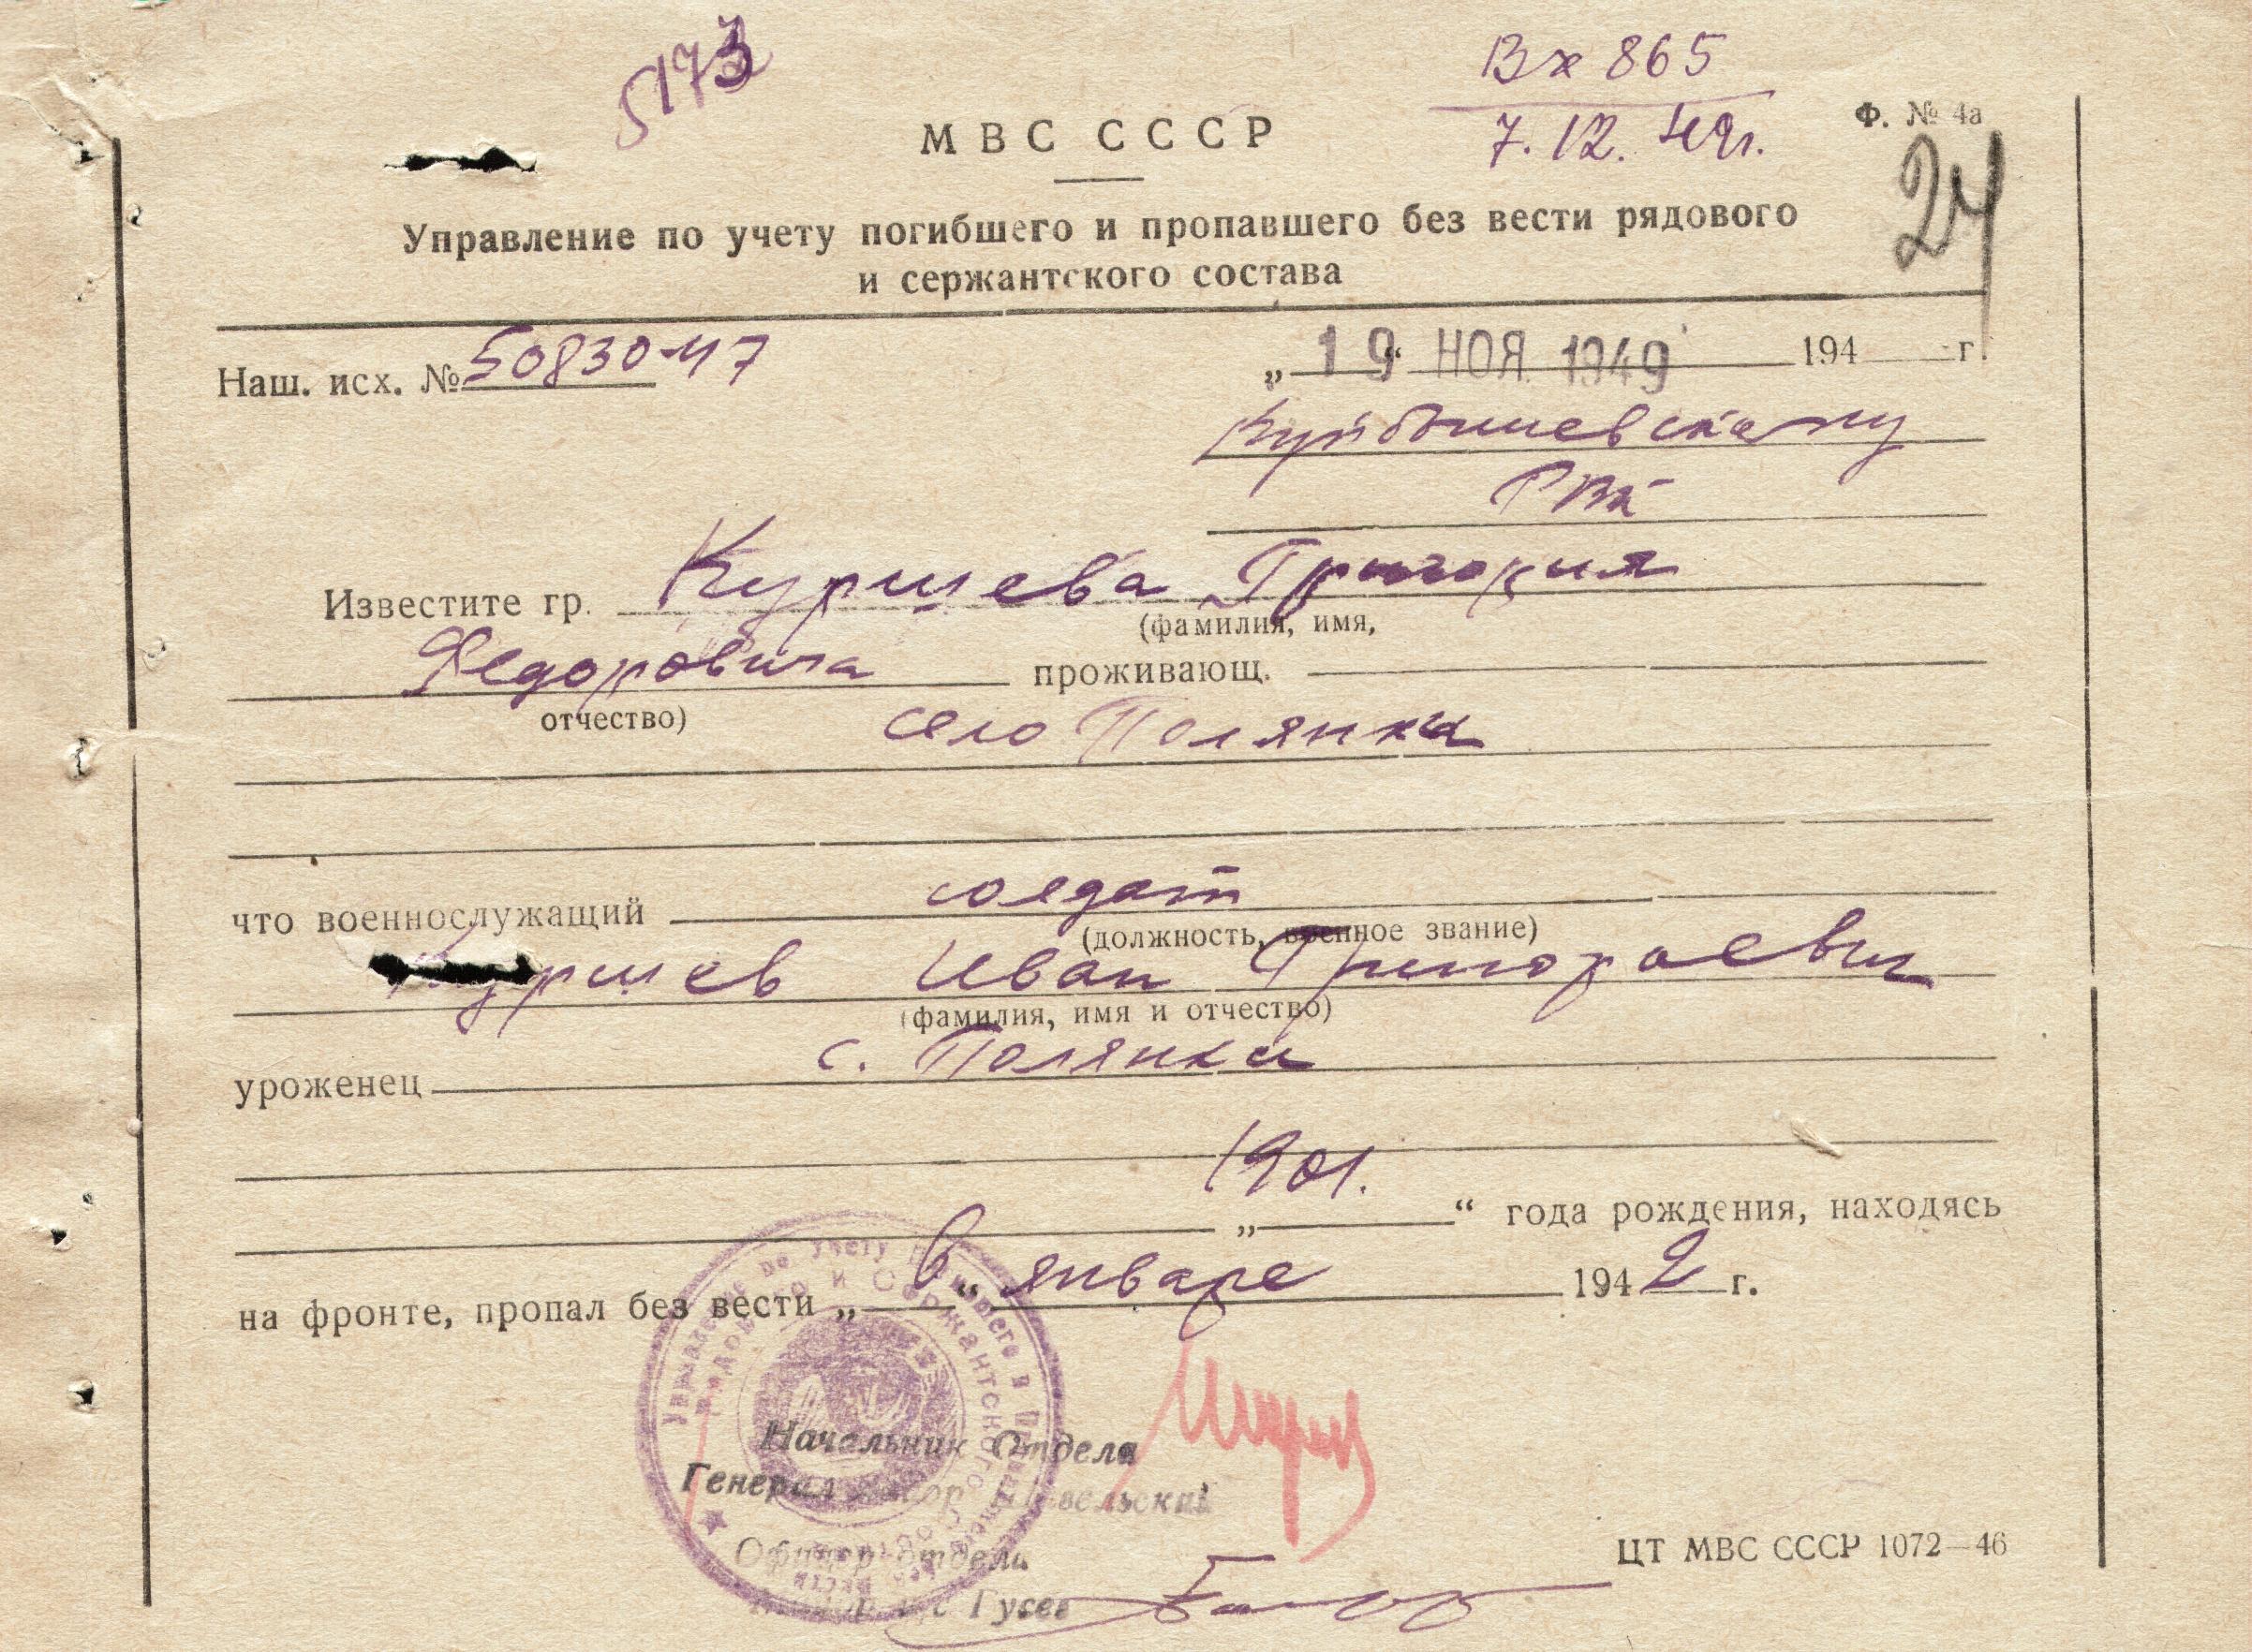 5173
Вх 865
7.12.49г.
Ф. № 4а
24
МВС СССР
Управление по учету погибшего и пропавшего без вести рядового
и сержантского состава
Наш. исх. № 50830-47
„19“ НОЯ 1949 194 г.
Куйбышевскому
РВК
Известите гр. Куршева Григория
(фамилия, имя,
Федоровича проживающ.
отчество)
село Полянки
что военнослужащий солдат
(должность, военное звание)
Куршев Иван Григорьевич
(фамилия, имя и отчество)
уроженец с. Полянки
„1901.“ года рождения, находясь
на фронте, пропал без вести „в“ январе 1942 г.
Управление по учету погибшего и
рядового и сержантского
Начальник Отдела
Генерал
Офицер отдела
Гусев
ЦТ МВС СССР 1072—46